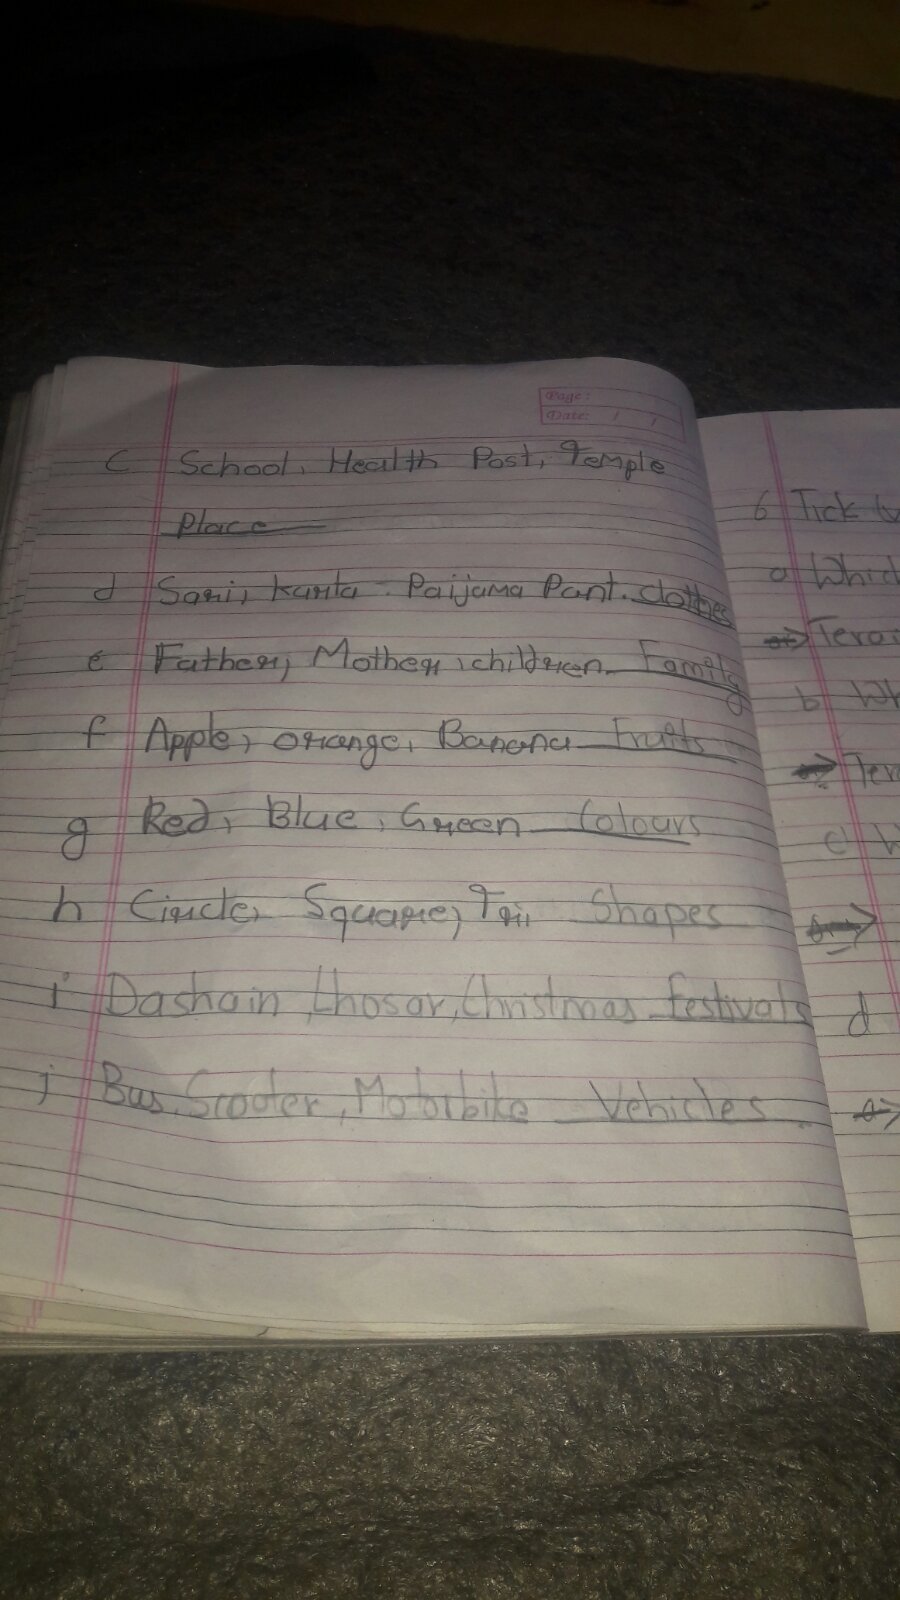 Page:
Date: / /
c School, Health Post, Temple
Place
d Sari, kurta Paijama Pant. clothes
e Father, Mother, children Family
f Apple, orange, Banana Fruits
g Red, Blue, Green Colours
h Circle, Square, Tri Shapes
i Dashain, Lhosar, Christmas festivals
j Bus, Scooter, Motorbike Vehicles
6 Tick
a Whic
Terai
b Wh
Ter
c W
d